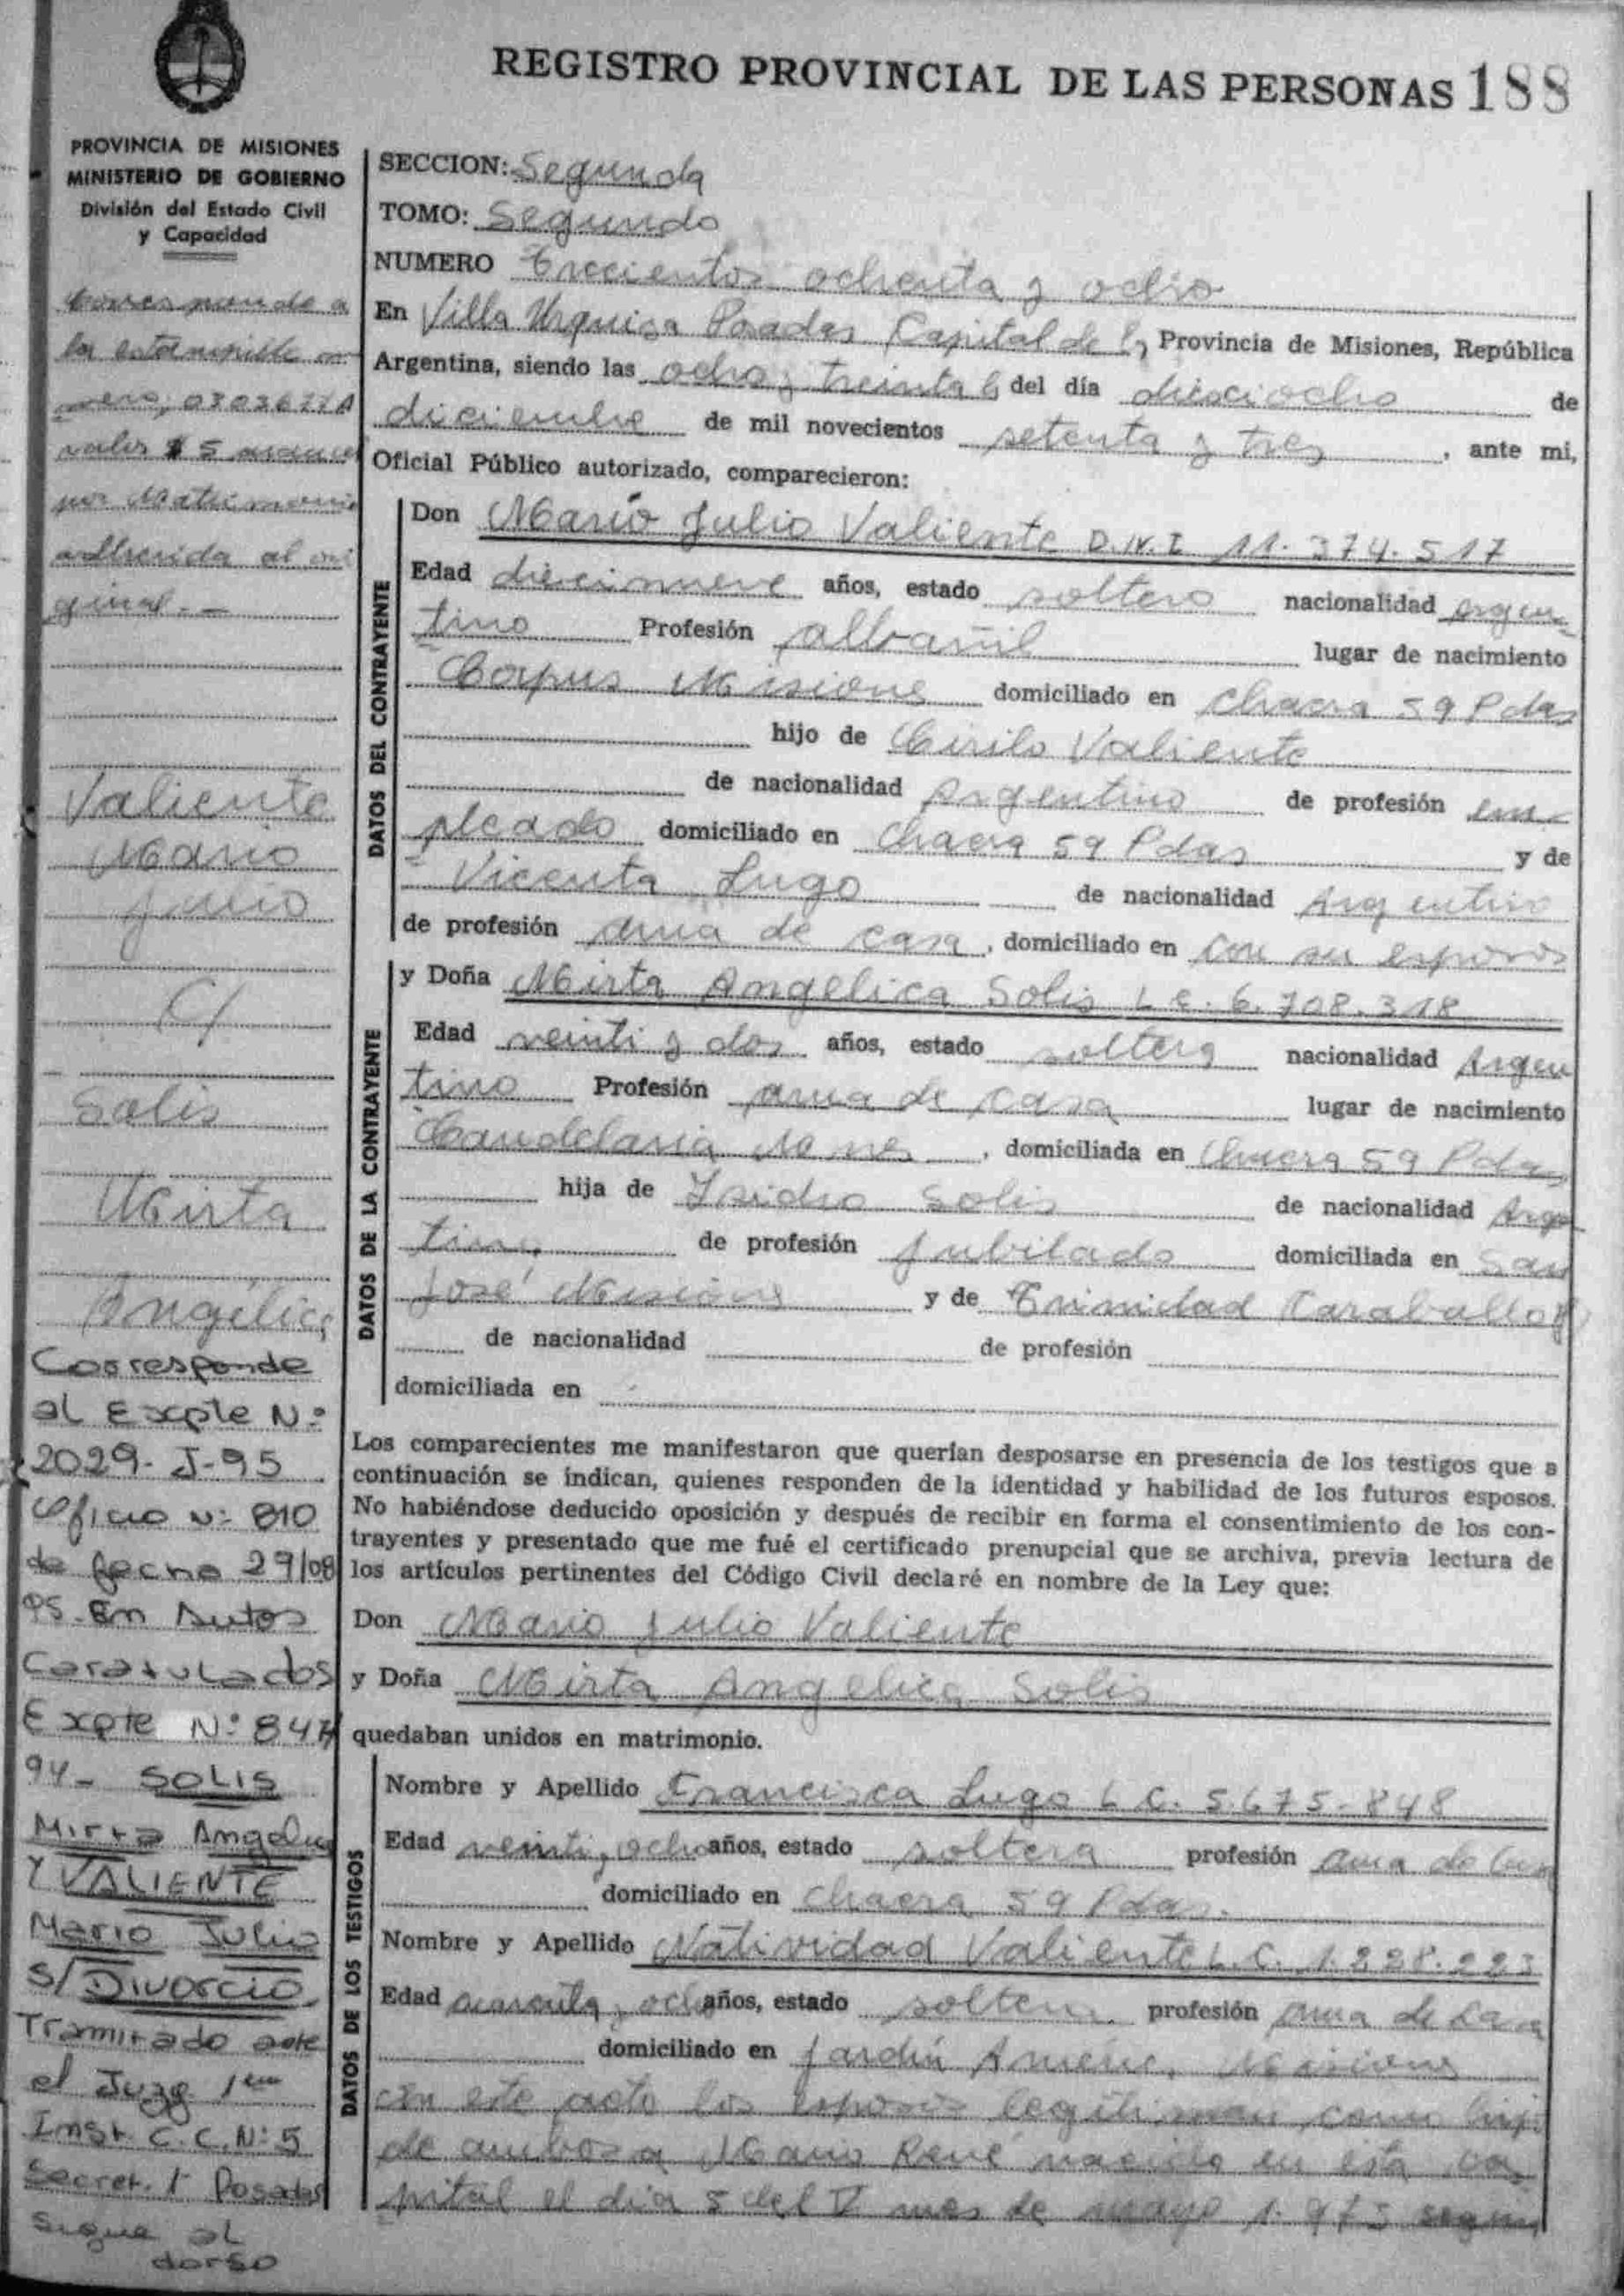 REGISTRO PROVINCIAL DE LAS PERSONAS 188
PROVINCIA DE MISIONES
MINISTERIO DE GOBIERNO
División del Estado Civil
y Capacidad
Corresponde a
la estampilla nu
mero, 0303677A
valor $ 5 arancel
por Matrimonio
adherida al ori
ginal. -
Valiente
Mario
Julio
C/
Solis
Mirta
Angelica
Corresponde
al Expte N.º
2029-J-95
Oficio Nº 810
de fecha 29/08
95. En Autos
Caratulados
Expte Nº 847
94- SOLIS
Mirta Angelica
Y VALIENTE
Mario Julio
S/ DIVORCIO.
Tramitado ante
el Juzg. 1era
Inst. C.C. Nº 5
Secret. 1 Posadas
Sigue al
dorso
SECCION: Segunda
TOMO: Segundo
NUMERO Trecientos ochenta y ocho
En Villa Urquiza Posadas Capital de la Provincia de Misiones, República
Argentina, siendo las ocho y treinta h del día dieciocho de
diciembre de mil novecientos setenta y tres, ante mi,
Oficial Público autorizado, comparecieron:
DATOS DEL CONTRAYENTE
Don Mario Julio Valiente D.N.I 11.374.517
Edad diecinueve años, estado soltero nacionalidad Argen
tino Profesión albañil lugar de nacimiento
Corpus Misiones domiciliado en Chacra 59 Pdas
hijo de Cirilo Valiente
de nacionalidad Argentino de profesión em
pleado domiciliado en Chacra 59 Pdas y de
Vicenta Lugo de nacionalidad Argentino
de profesión ama de casa, domiciliado en con su esposos
DATOS DE LA CONTRAYENTE
y Doña Mirta Angelica Solis L C. 6.708.318
Edad veinti y dos años, estado soltera nacionalidad Argen
tino Profesión ama de casa lugar de nacimiento
Candelaria Mnes, domiciliada en Chacra 59 Pdas
hija de Isidro Solis de nacionalidad Argen
tino, de profesión jubilado domiciliada en San
José Misiones y de Trinidad Caraballo
de nacionalidad de profesión
domiciliada en
Los comparecientes me manifestaron que querían desposarse en presencia de los testigos que a
continuación se indican, quienes responden de la identidad y habilidad de los futuros esposos.
No habiéndose deducido oposición y después de recibir en forma el consentimiento de los con-
trayentes y presentado que me fué el certificado prenupcial que se archiva, previa lectura de
los artículos pertinentes del Código Civil declaré en nombre de la Ley que:
Don Mario Julio Valiente
y Doña Mirta Angelica Solis
quedaban unidos en matrimonio.
DATOS DE LOS TESTIGOS
Nombre y Apellido Francisca Lugo L C. 5.675.848
Edad veinti y ocho años, estado soltera profesión ama de casa
domiciliado en Chacra 59 Pdas.
Nombre y Apellido Natividad Valiente L.C. 1.228.223
Edad cuarenta y ocho años, estado soltera profesión ama de casa
domiciliado en Jardín América Misiones
En este acto los esposos legitiman como hijo
de ambos a Mario René nacido en esta ca
pital el día 5 del V mes de mayo 1.973 según